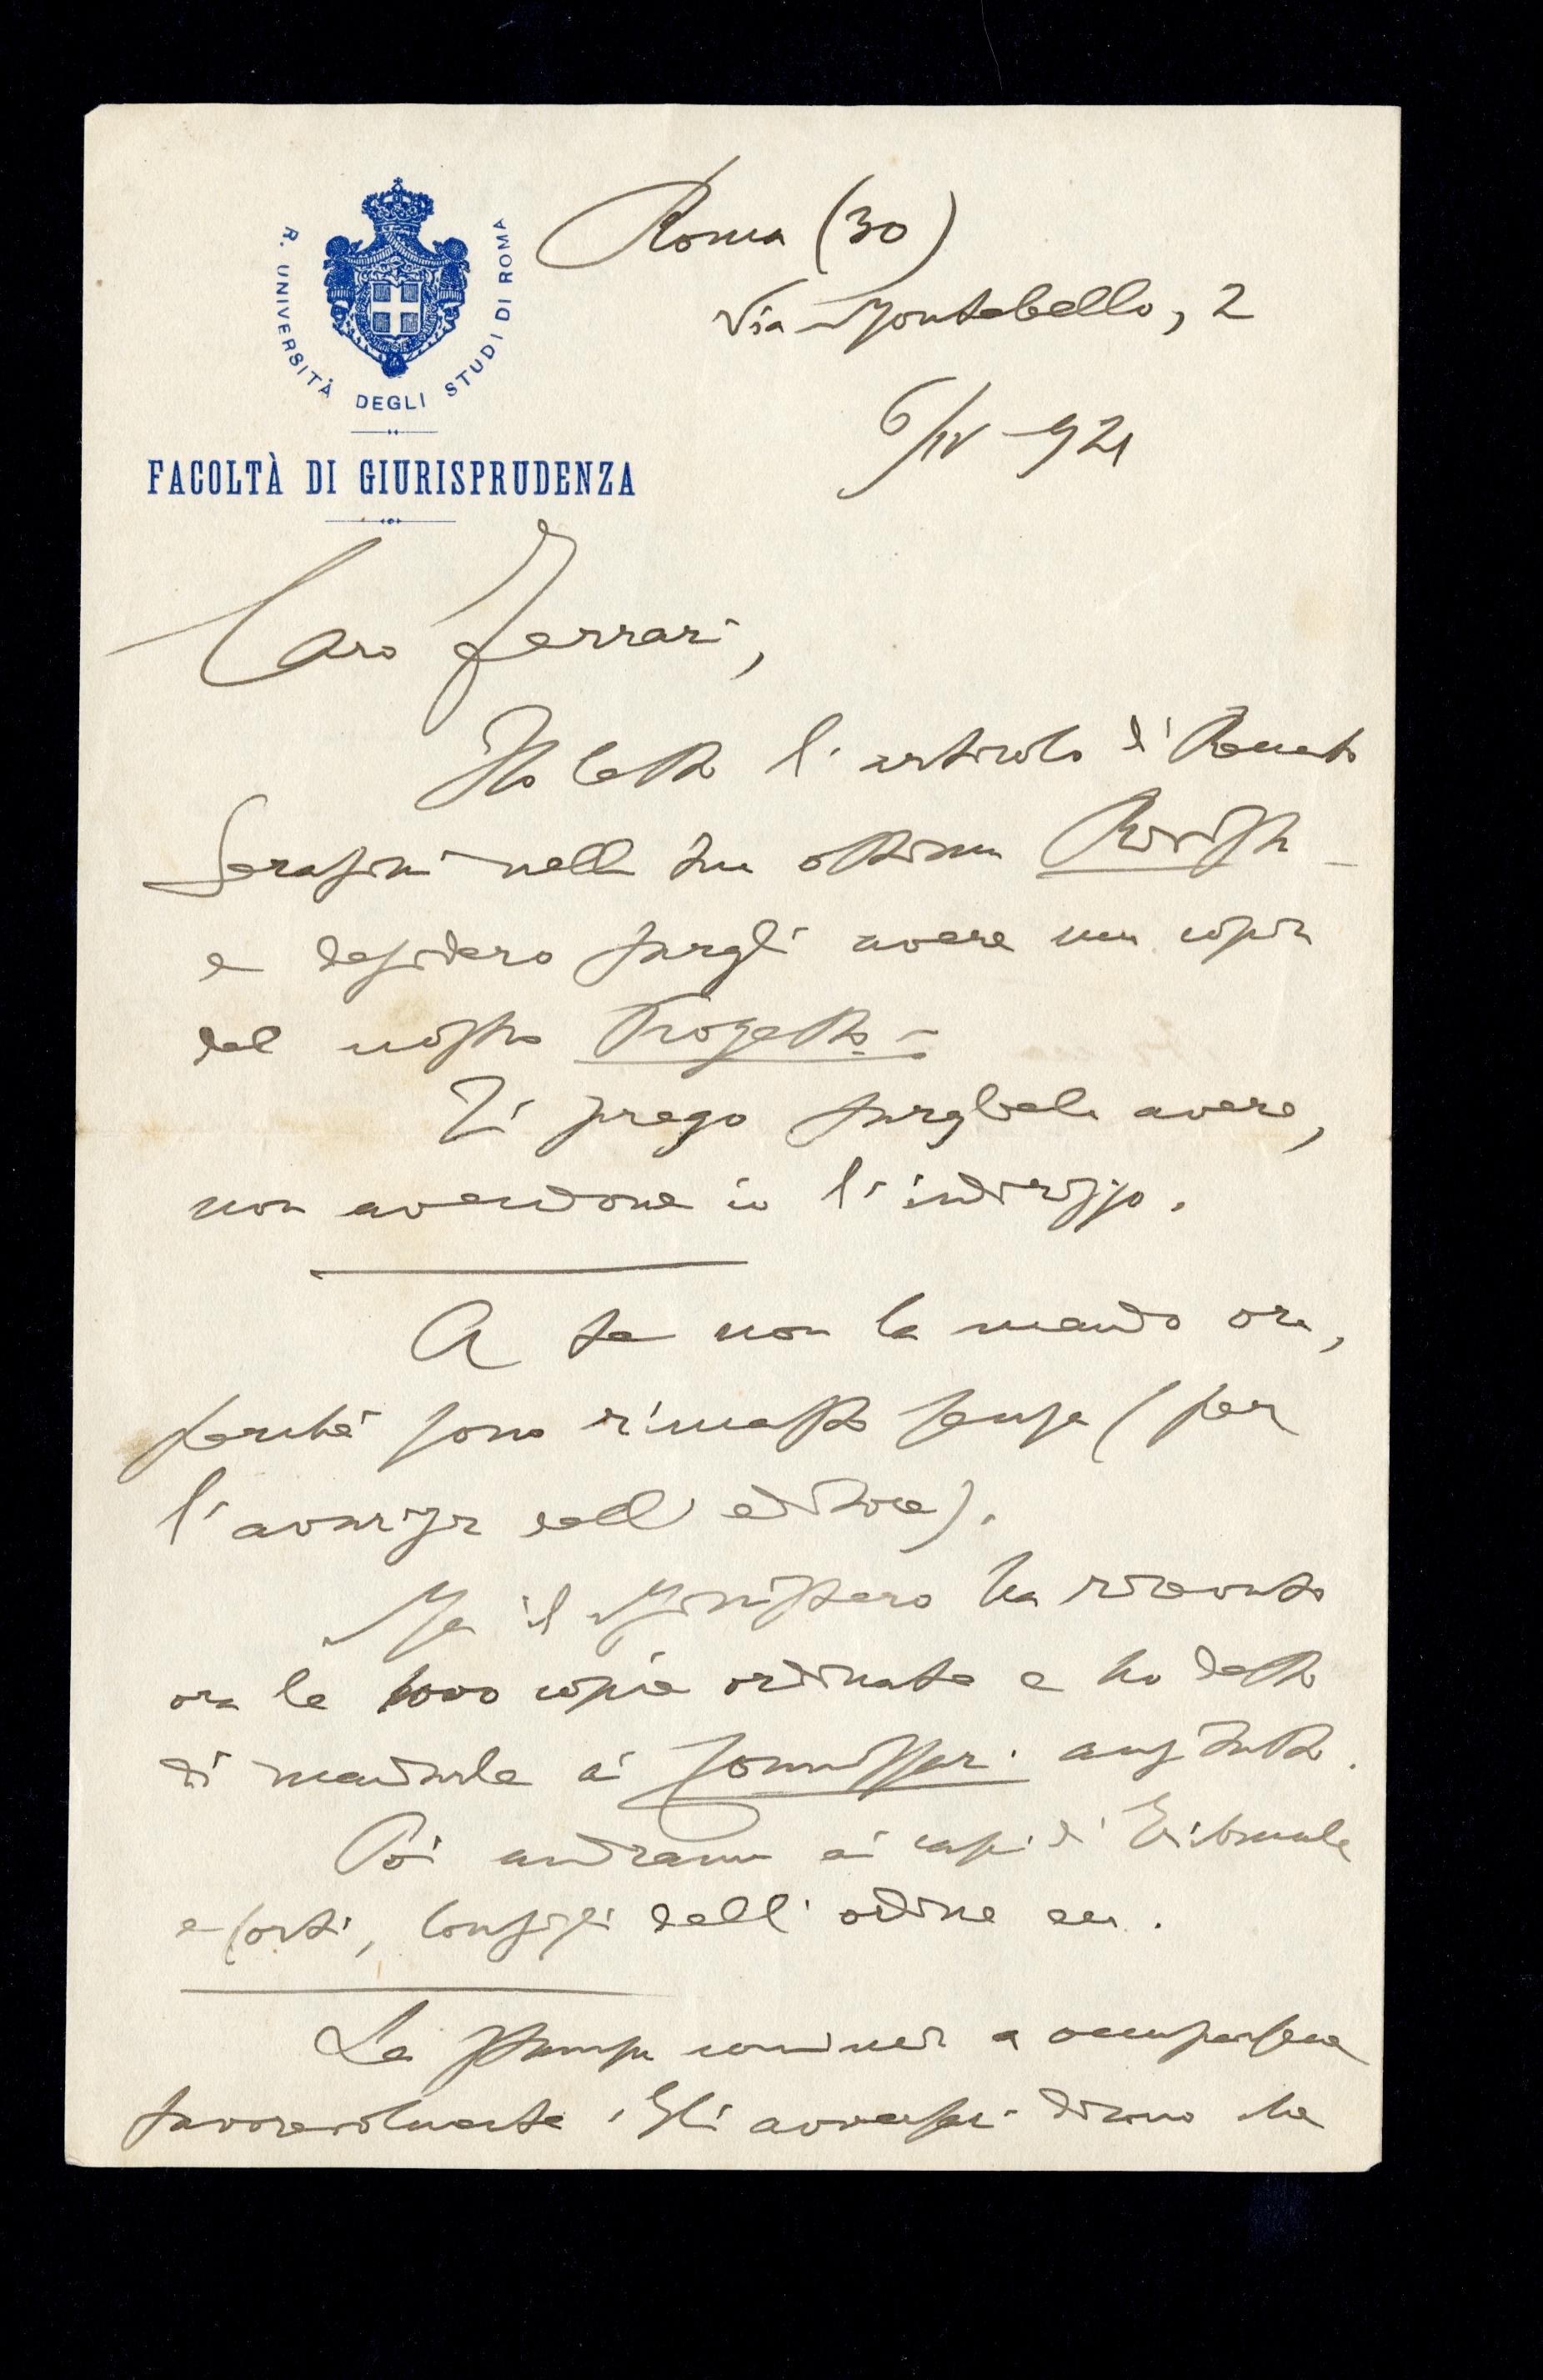 R. UNIVERSITÀ DEGLI STUDI DI ROMA
FACOLTÀ DI GIURISPRUDENZA
Roma (30)
Via Montebello, 2
6/IV -921
Caro Ferrari,
Ho letto l'articolo di Renato
Serafini nella tua ottima Rivista -
e desidero fargli avere una copia
del nostro Progetto. -
Ti prego fargliela avere,
non avendone io l'indirizzo.
A te non la mando ora,
perchè sono rimasto senza (per
l'avarizia dell'editore).
Ma il Ministero ha ricevuto
ora le 1000 copie ordinate e ho detto
di mandarle ai Commissari anzitutto.
Poi andranno ai capi di Tribunale
e Corti, Consigli dell'ordine ecc.
La stampa comincia a occuparsene
favorevolmente. Gli avversari dicono che